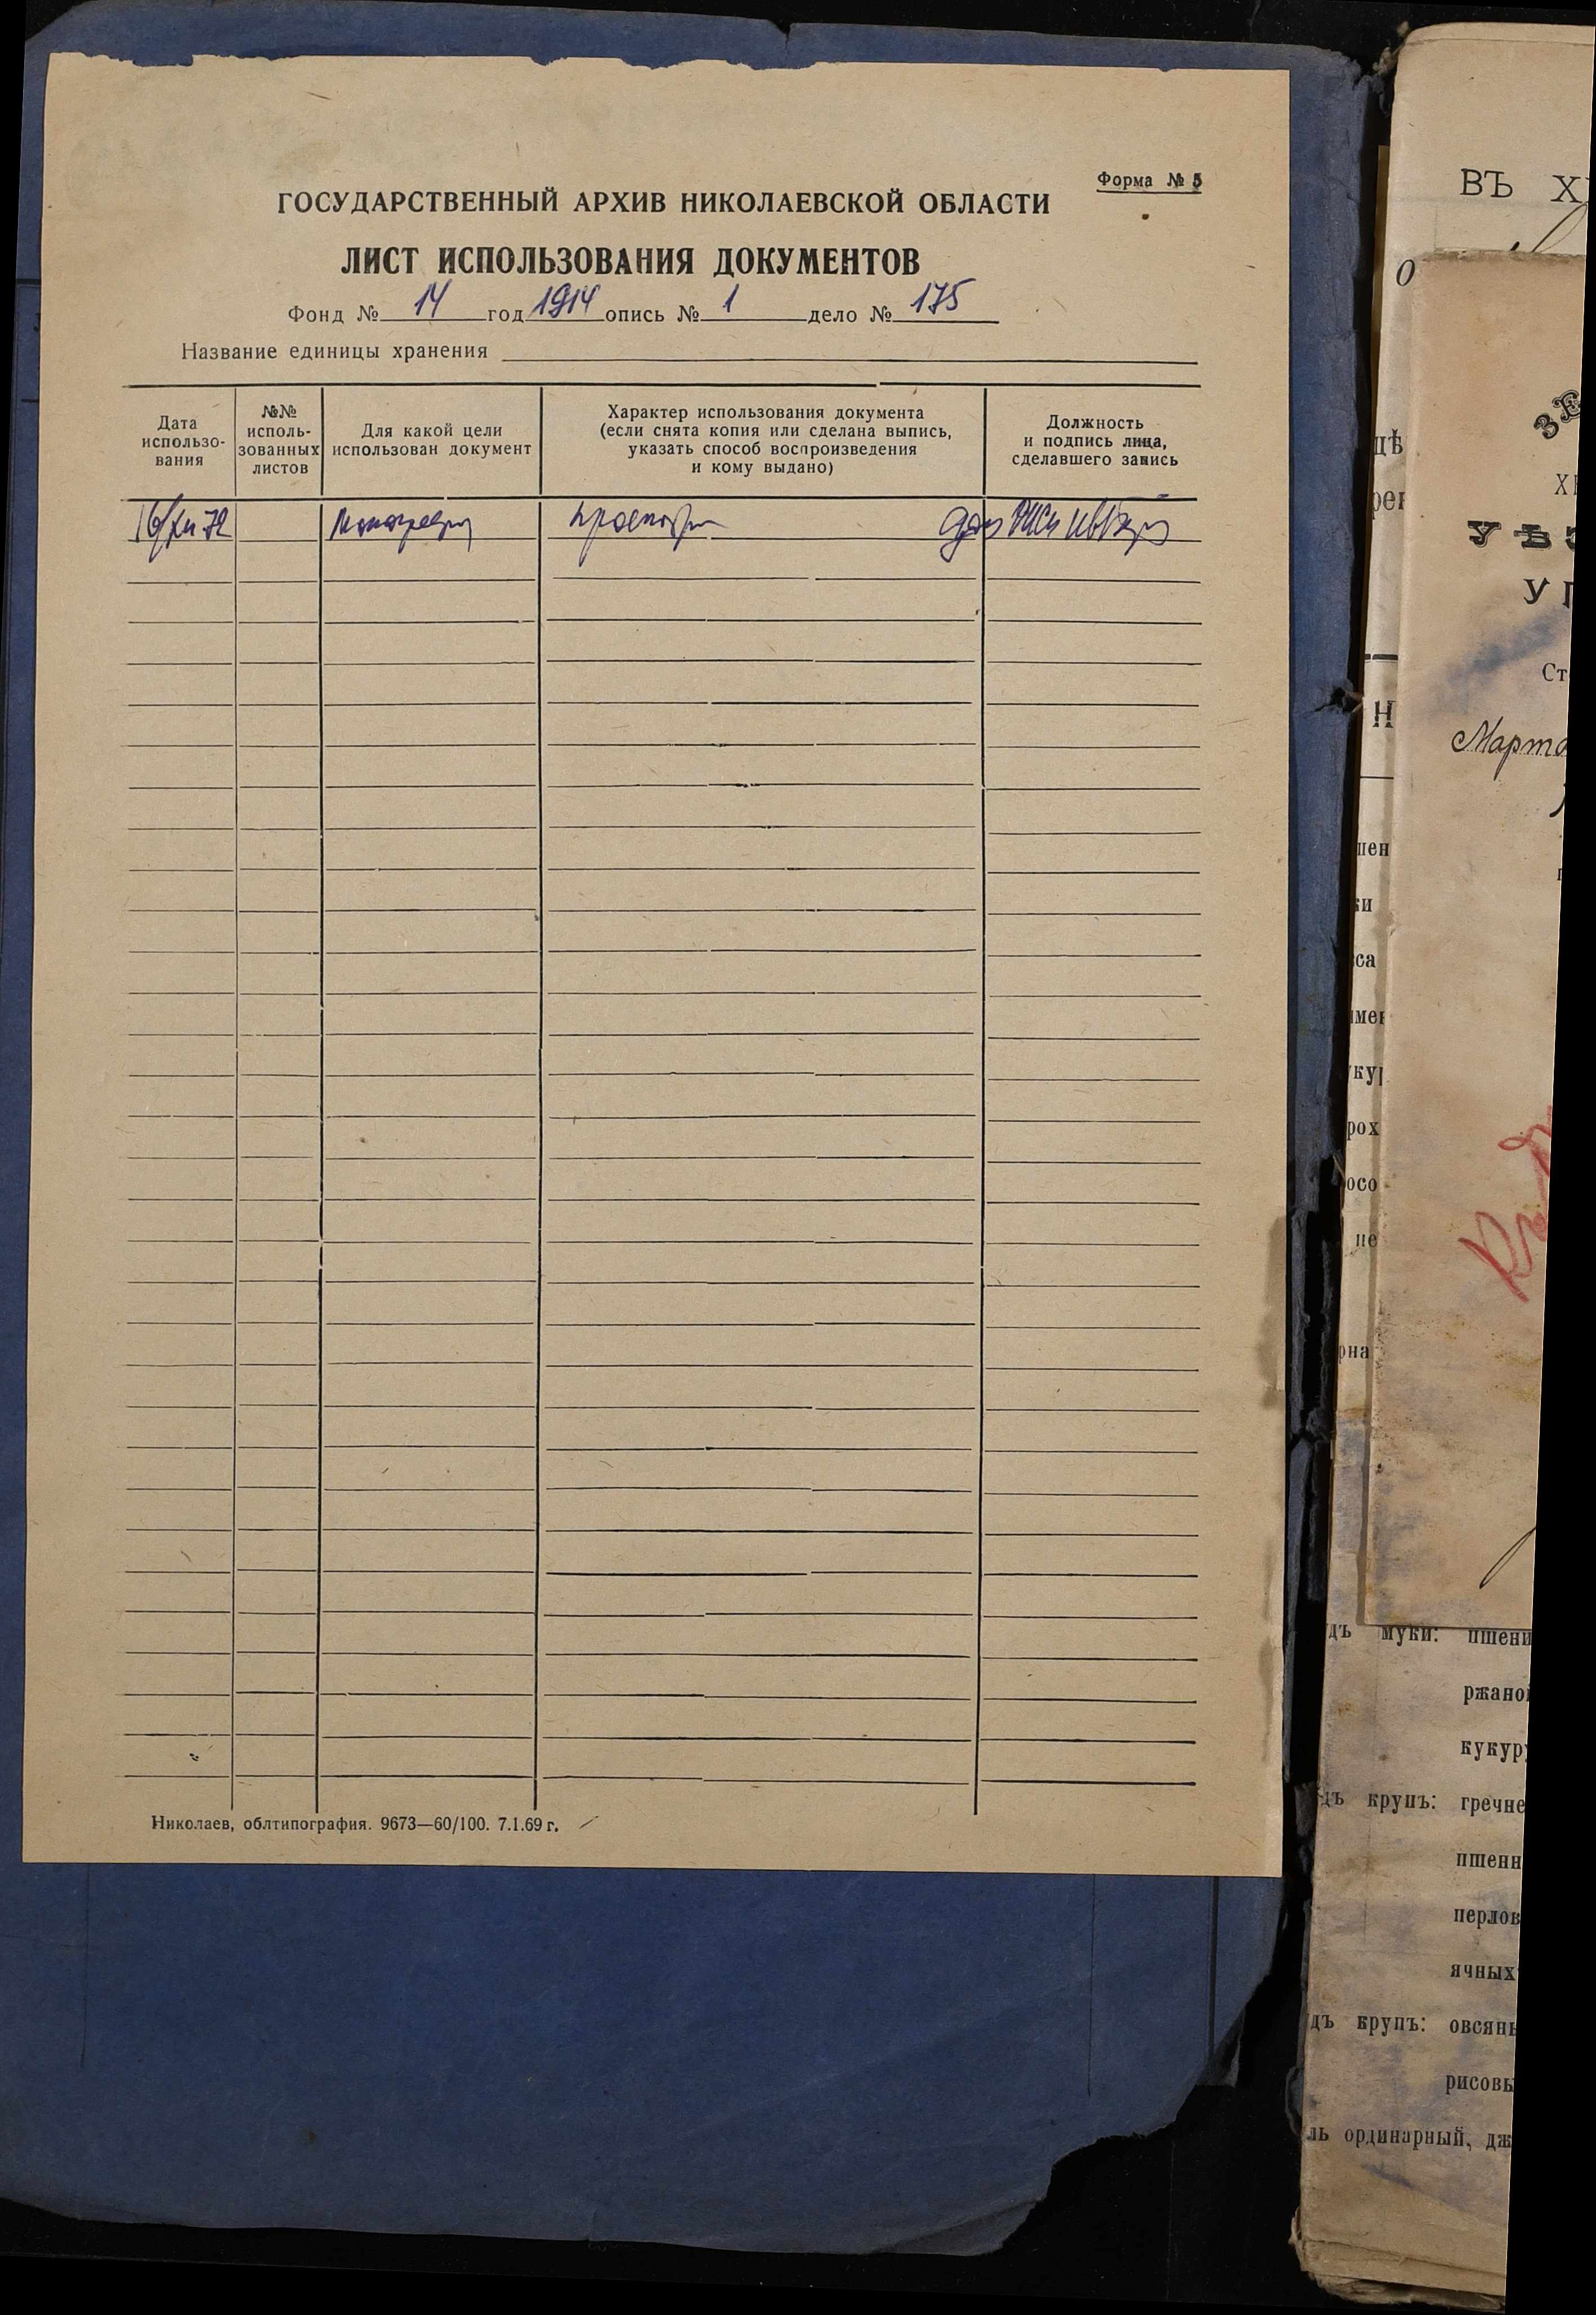 Форма № 5
ГОСУДАРСТВЕННЫЙ АРХИВ НИКОЛАЕВСКОЙ ОБЛАСТИ
ЛИСТ ИСПОЛЬЗОВАНИЯ ДОКУМЕНТОВ
Фонд № 14 год 1914 опись № 1 дело № 175
Название единицы хранения
Дата
использо-
вания
№№
исполь-
зованных
листов
Для какой цели
использован документ
Характер использования документа
(если снята копия или сделана выпись,
указать способ воспроизведения
и кому выдано)
Должность
и подпись лица,
сделавшего запись
16/XII 72 просмотр
Николаев, облтипография. 9673—60/100. 7.1.69 г.
ВЪ
Марта
муки: пшени
ржаной
кукуру
крупъ: гречне
пшенн
перлов
ячных
крупъ: овсянь
рисовы
ординарный,